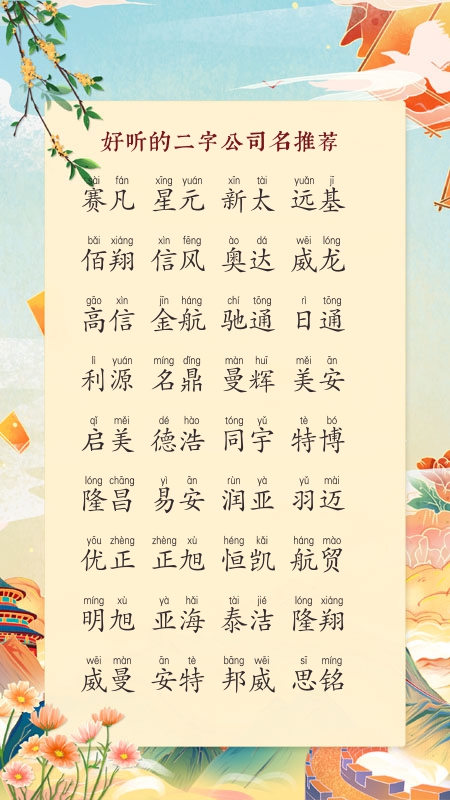 好听的二字公司名推荐
sài fán xīng yuán xīn tài yuǎn jī
赛凡 星元 新太 远基
bǎi xiáng xìn fēng ào dá wēi lóng
佰翔 信风 奥达 威龙
gāo xìn jīn háng chí tōng rì tōng
高信 金航 驰通 日通
lì yuán míng dǐng màn huī měi ān
利源 名鼎 曼辉 美安
qǐ měi dé hào tóng yǔ tè bó
启美 德浩 同宇 特博
lóng chāng yì ān rùn yà yǔ mài
隆昌 易安 润亚 羽迈
yōu zhèng zhèng xù héng kǎi háng mào
优正 正旭 恒凯 航贸
míng xù yà hǎi tài jié lóng xiáng
明旭 亚海 泰洁 隆翔
wēi màn ān tè bāng wēi sī míng
威曼 安特 邦威 思铭